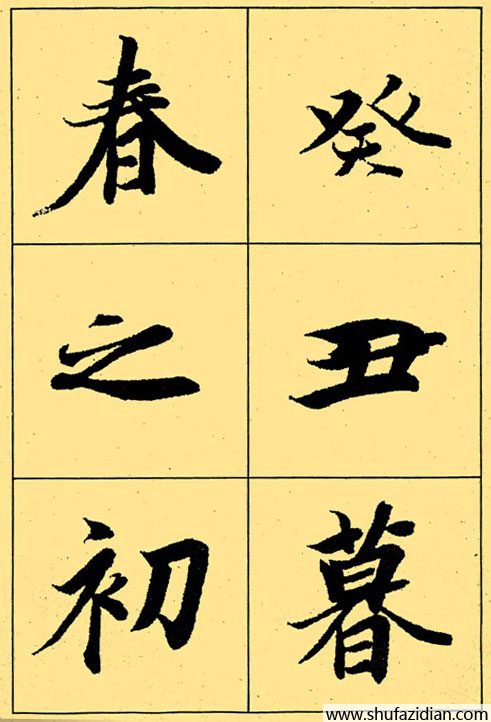 癸丑暮
春之初
www.shufazidian.com